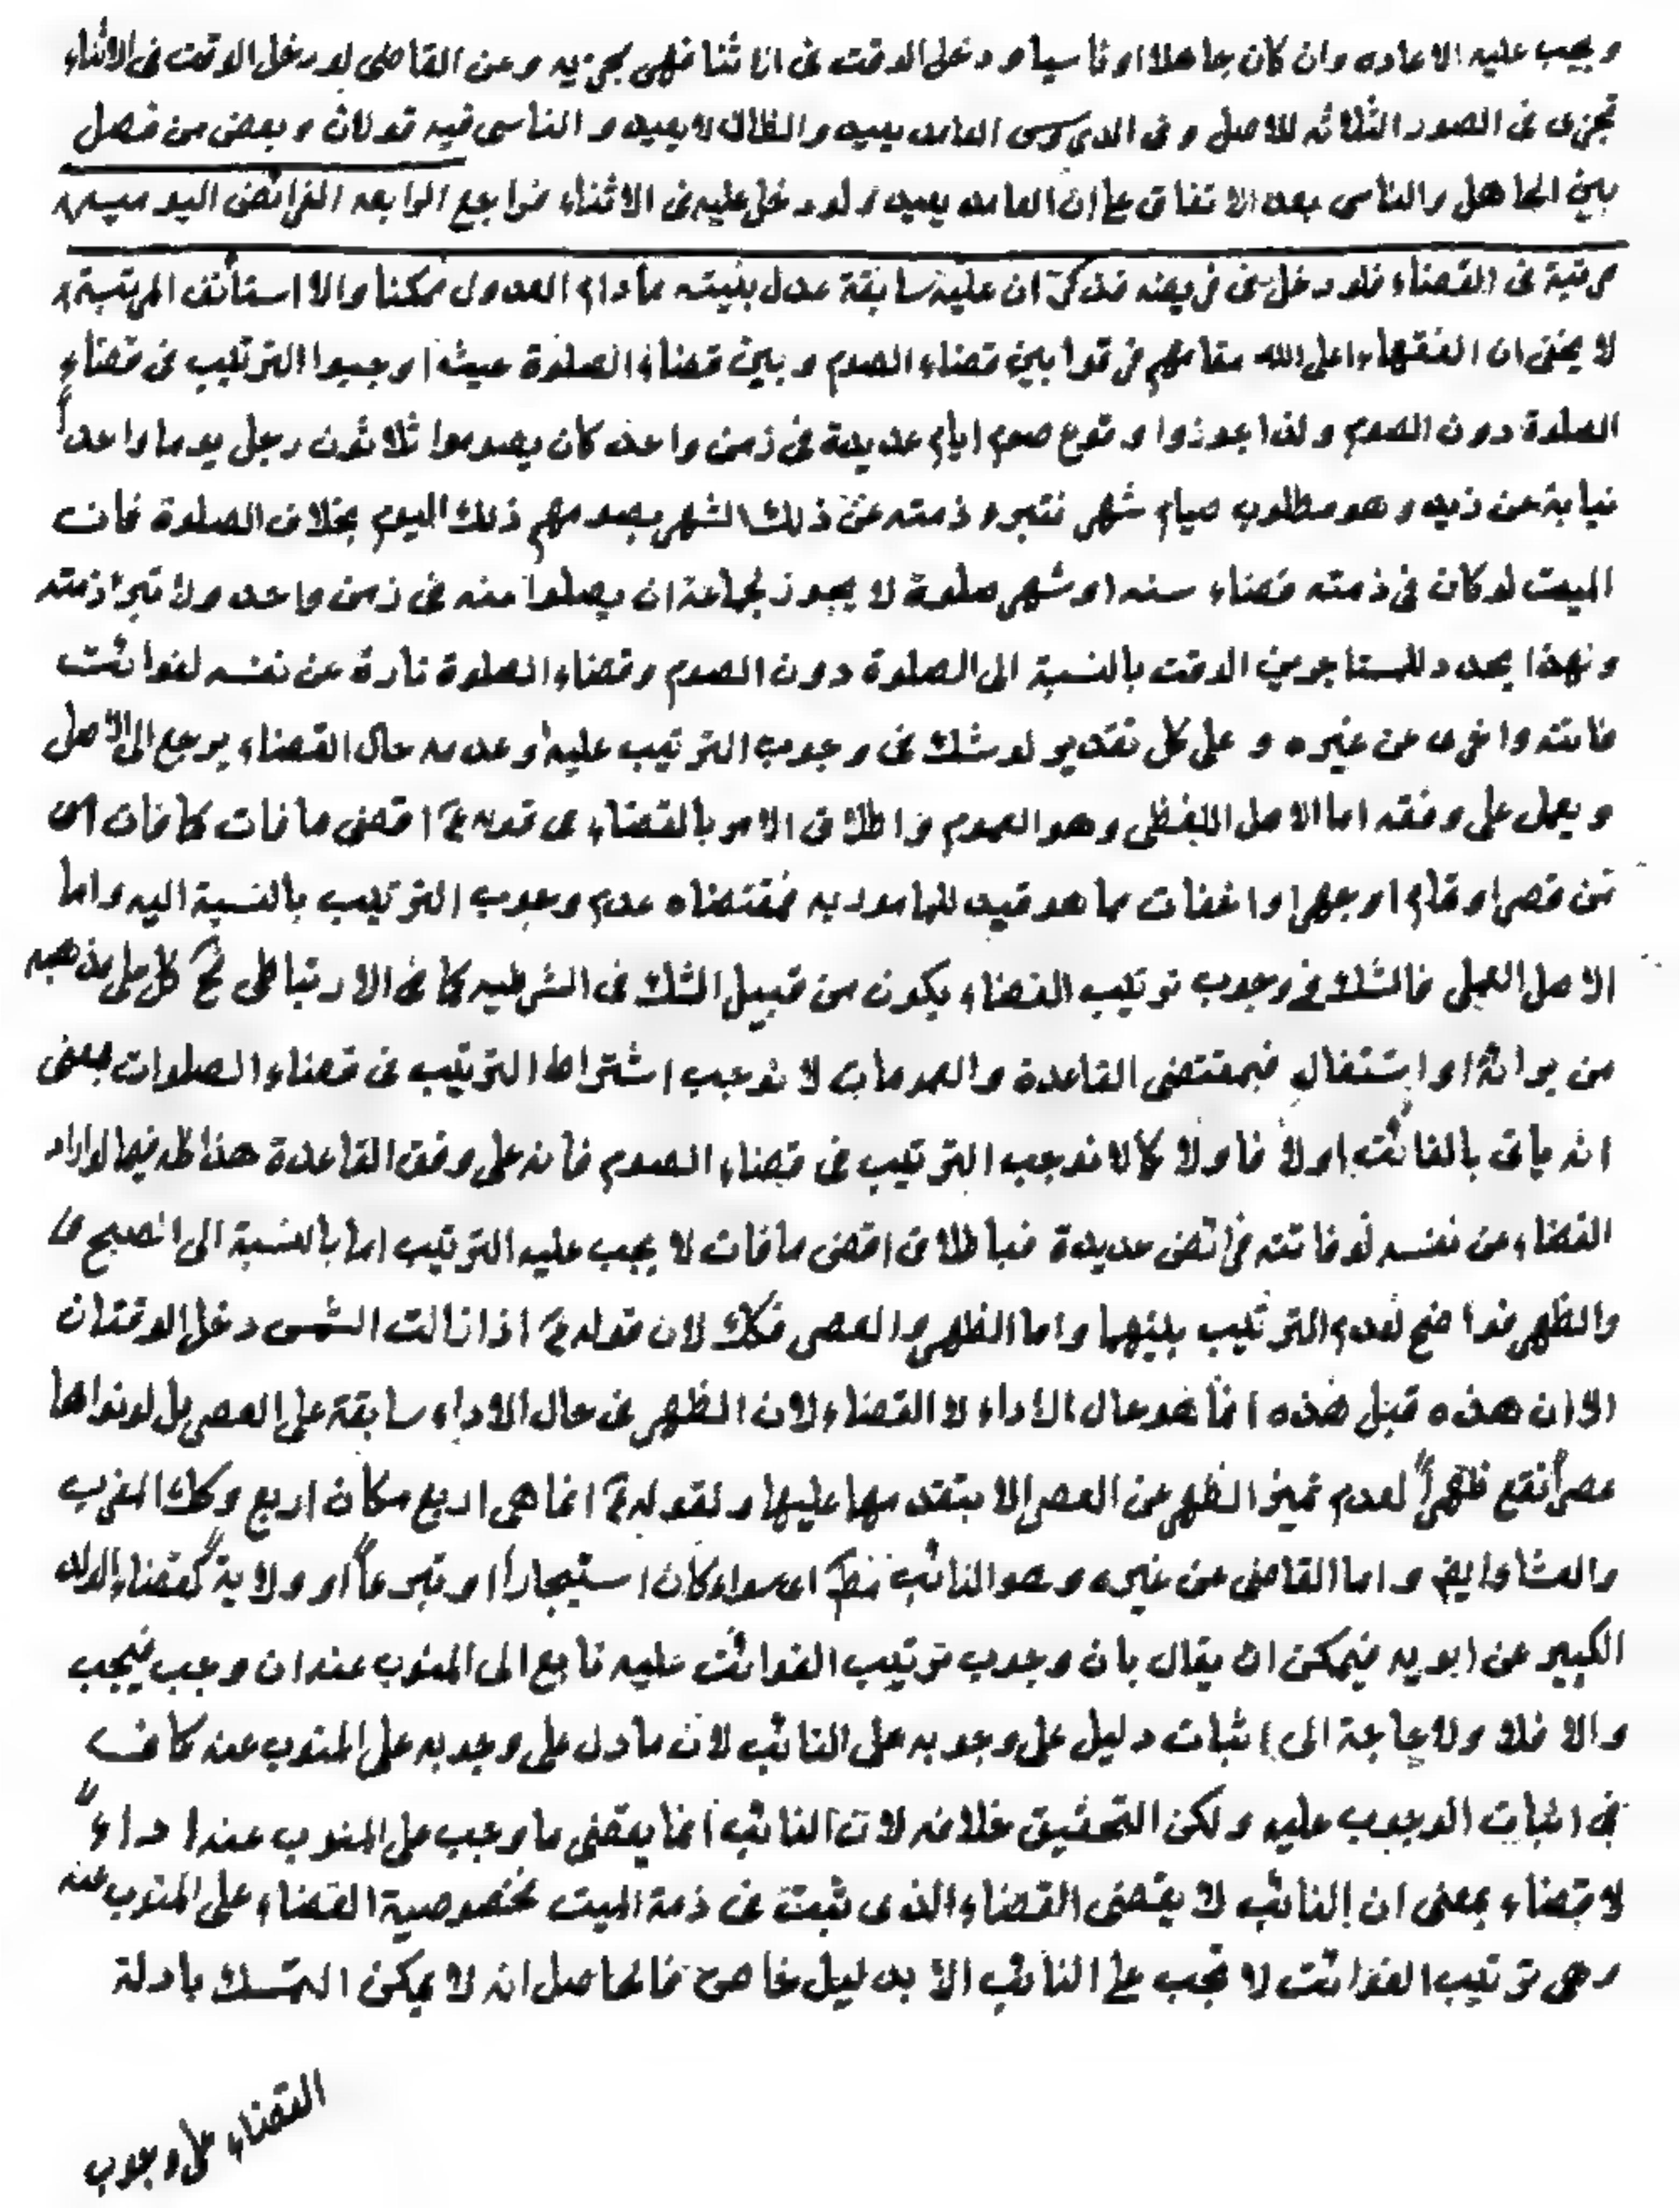 ويجب عليه الاعاده وان كان جاهلا او ناسيا ودخل الوقت فى اثنا فهى يجزيه وعن القاضى لو دخل الوقت فى الاثناء
تجزى فى الصور الثلاثه للاصل وفى العامد يعيد والظان لا يعيد والناسى فيه قولان وبعض من فصل
بين الجاهل والناسى بعد الاتفاق على ان العامد يعيد ولو دخل عليه فى الاثناء الرابعه الفرائض اليوميه
مرتبة فى القضاء فلو دخل فى فريضه فذكر ان عليه سابقة عدل بنيته مادام العدول ممكنا والا استأنف المرتبة
لا يخفى ان الفقهاء اعلى الله مقامهم فرقوا بين قضاء الصوم وبين قضاء الصلوة حيث اوجبوا الترتيب فى قضاء
الصلوة دون الصوم ولذا جوزوا وقوع صوم ايام عديدة فى زمن واحد كان يصوموا ثلاثون رجل يوما واحداً
نيابة عن زيد وهو مطلوب صيام شهر فتبرء ذمته عن ذلك الشهر بصومهم ذلك اليوم بخلاف الصلوة فان
الميت لو كان فى ذمته قضاء سنه او شهر صلوة لا يجوز لجماعة ان يصلوا عنه فى زمن واحد ولا تبرأ ذمته
ولهذا يحدد للمستاجرين الوقت بالنسبة الى الصلوة دون الصوم وقضاء الصلوة تارة عن نفسه لفوائت
فاتته واخرى عن غيره وعلى كل تقدير لو شك فى وجوب الترتيب عليه او عدمه حال القضاء يرجع الى الاصل
ويعمل على وفقه اما الاصل اللفظى وهو العموم واطلاق الامر بالقضاء فى قوله ع اقضى ما فات كما فات اى
من قصر او تمام او جهر او اخفات مما هو قيد للمامور به فمقتضاه عدم وجوب الترتيب بالنسبة اليه واما
الاصل العملى فالشك فى وجوب ترتيب القضاء يكون من قبيل الشك فى الشرطيه كما فى الارتباطى كل على مذهبه
من برائة او اشتغال فبمقتضى القاعدة والعمومات لا نوجب اشتراط الترتيب فى قضاء الصلوات بمعنى
انه ياتى بالفائت اولا فاولا كما لا نوجب الترتيب فى قضاء الصوم فانه على وفق القاعدة هذا كله فيما لو اراد
القضاء عن نفسه لو فاتته فرائض عديدة فباطلاق اقضى ما فات لا يجب عليه الترتيب اما بالنسبة الى الصبح
والظهر فواضح لعدم الترتيب بينهما واما الظهر والعصر فكك لان قوله ع اذا زالت الشمس دخل الوقتان
الا ان هذه قبل هذه انما هو حال الاداء لا القضاء لان الظهر فى حال الاداء سابقة على العصر بل لو نواها
عصراً تقع ظهراً لعدم تميز الظهر عن العصر الا بتقدمها عليها ولقوله ع انما هى اربع مكان اربع وكك المغرب
والعشا ايض واما القاضى عن غيره وهو النائب مط اى سواء كان استيجاراً او تبرعاً او ولاية كقضاء الولد
الكبير عن ابويه فيمكن ان يقال بان وجوب ترتيب الفوائت عليه تابع الى المنوب عنه ان وجب فيجب
والا فلا ولا حاجة الى اثبات دليل على وجوبه على النائب لان ما دل على وجوبه على المنوب عنه كاف
فى اثبات الوجوب عليه ولكن التحقيق خلافه لان النائب انما يقضى ما وجب على المنوب عنه اداءً
لا قضاء بمعنى ان النائب لا يقضى القضاء الذى ثبت فى ذمة الميت فخصوصية القضاء على المنوب عنه
وهى ترتيب الفوائت لا تجب على النائب الا بدليل خاص فالحاصل انه لا يمكن التمسك بادلة
القضاء على وجوب